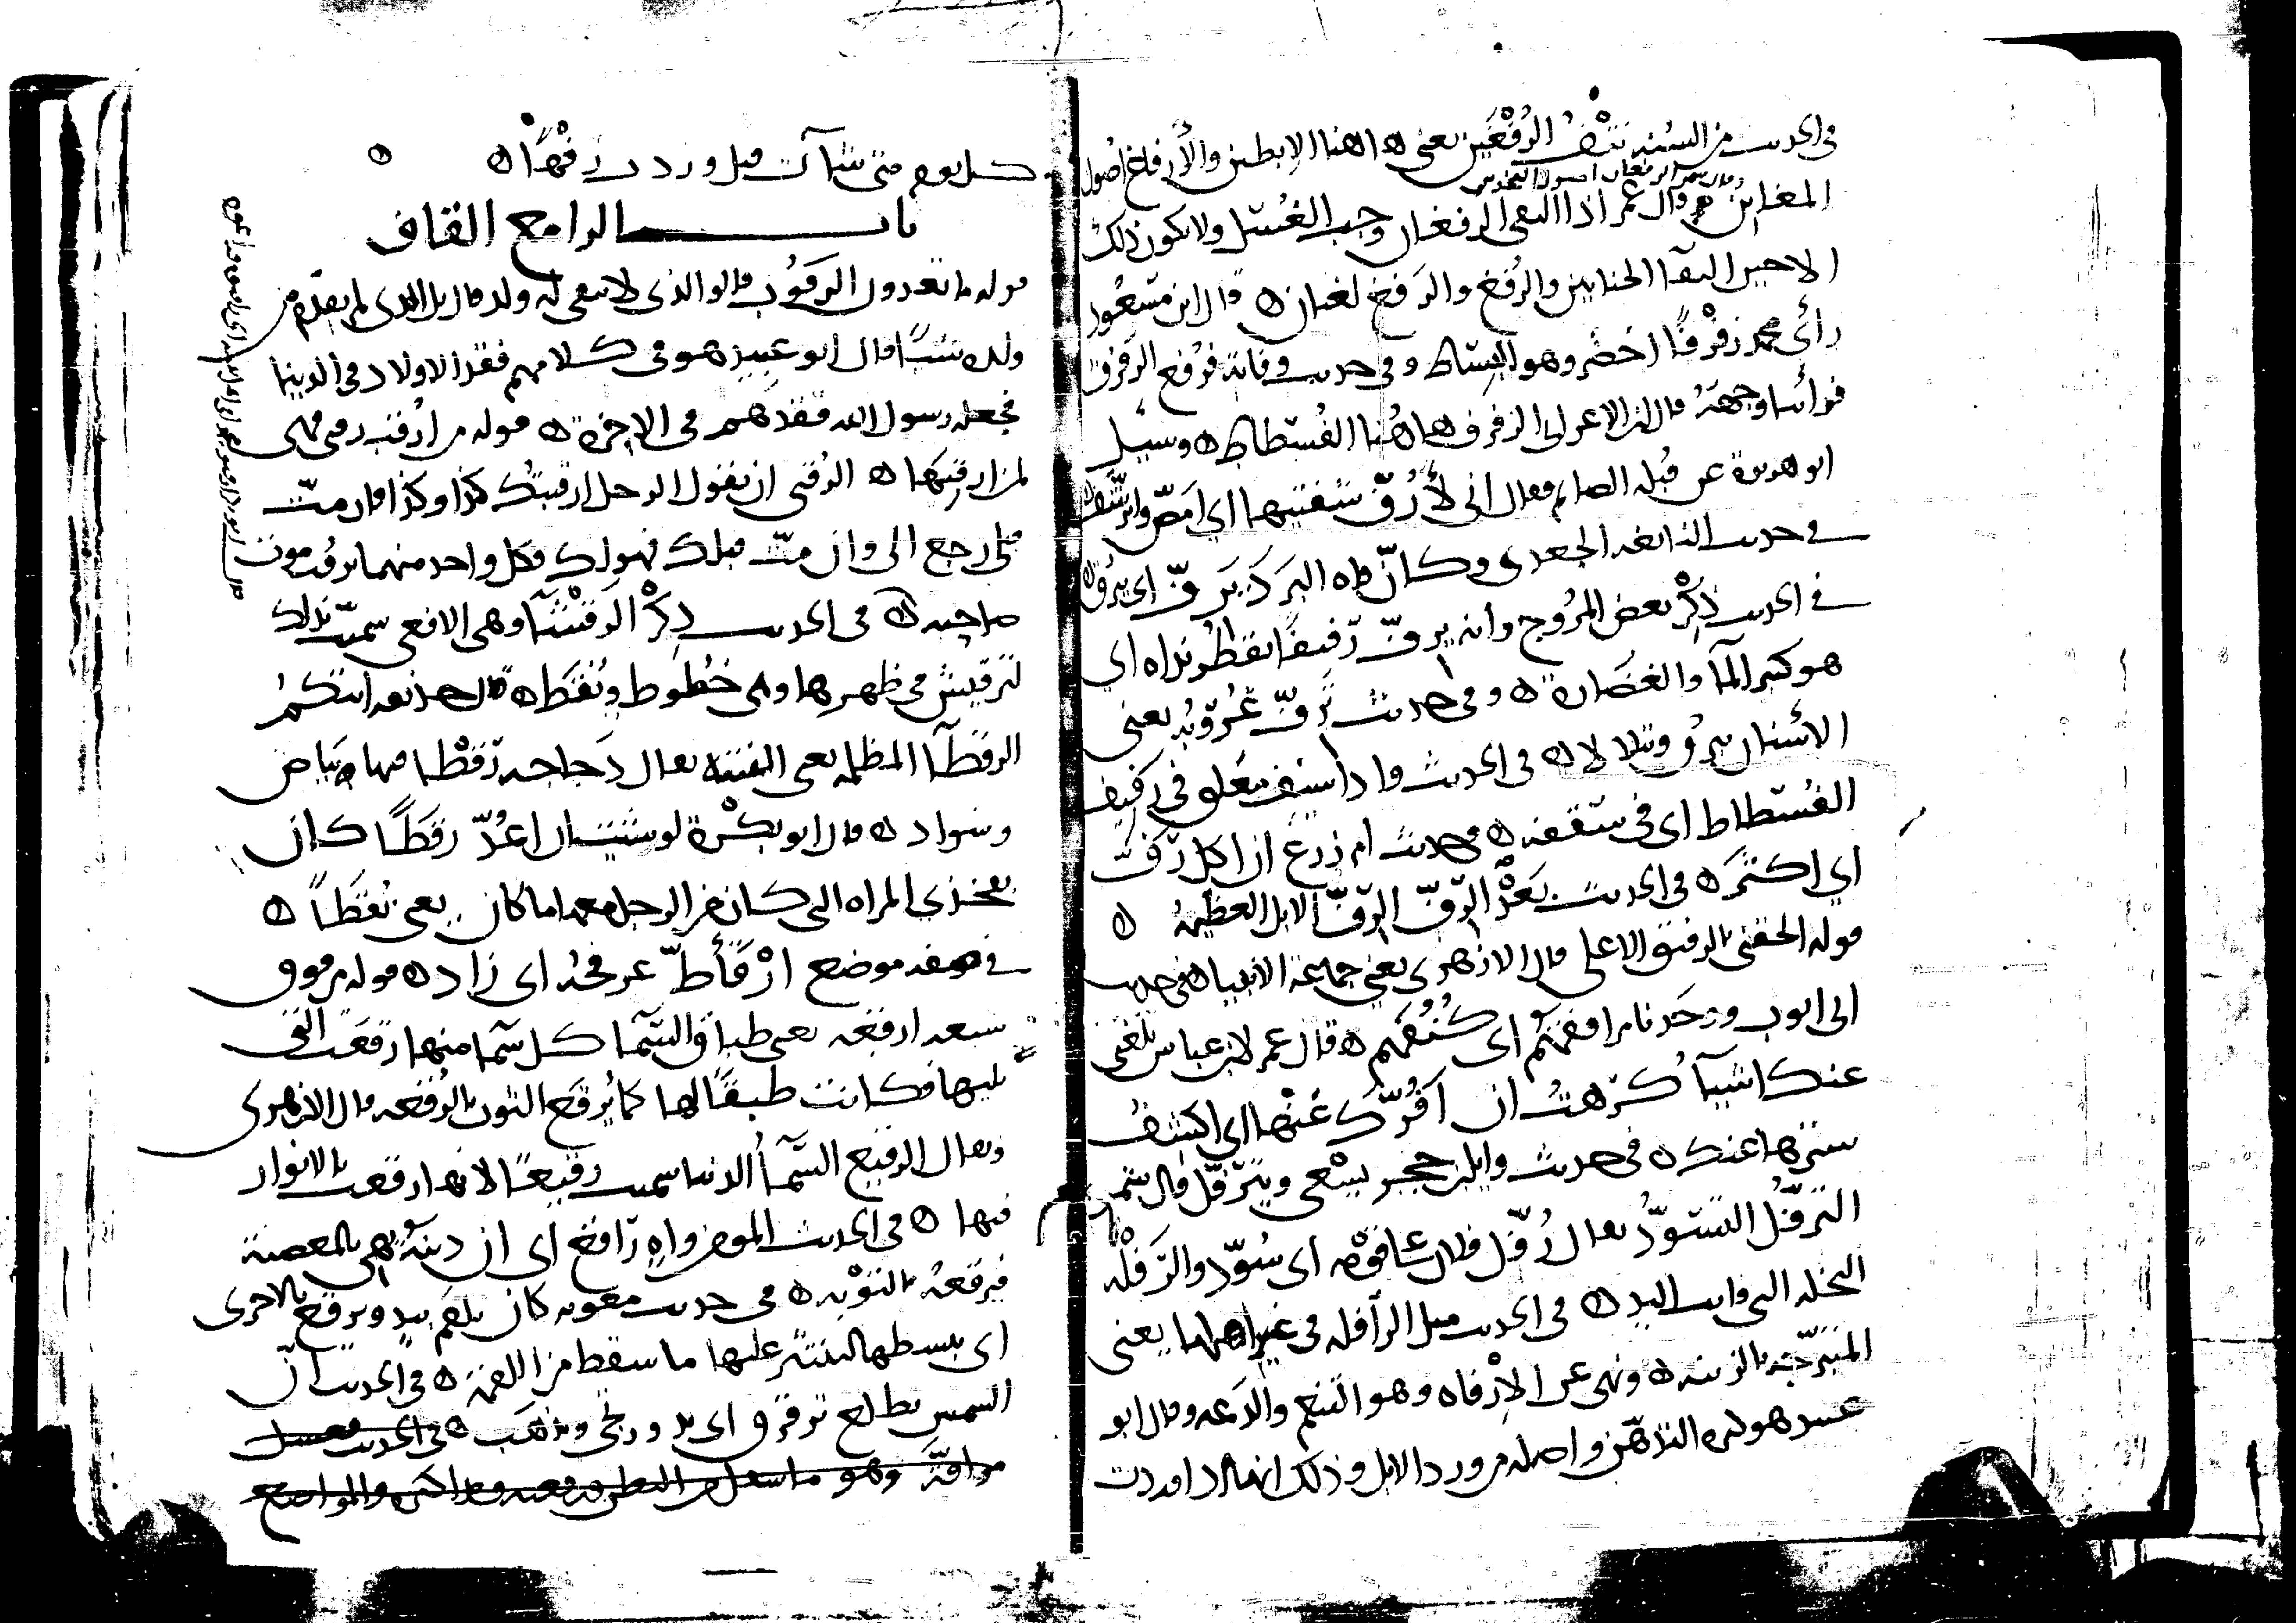 في الحديث من السنة نتف الرفغين يعني هاهنا الإبطين والأرفاغ أصول
المغابن وقال عمر إذا التقى الرفغان وجب الغسل ولا يكون ذلك
الا حين التقا الختانين والرُفغ والرَفغ لغتان قال ابن مسعود
رأى محمد رفرفًا أخضر وهو البساط وفي حديث وفاته فرُفع الرفرف
فرأينا وجهه قال ابن الاعرابي الرفرف هاهنا الفسطاط وسئل
ابو هريرة عن قبلة الصايم فقال اني لأرُفّ شفتيها اي امصّ واترشف
في حديث النابغة الجعدي وكانّ فاه البرَد يَرفّ اي يبرق
في الحديث ذِكْر بعض المُروج وانه يرفّ رفيفًا يقطر نداه اي
هو كثير المآ والغضارة وفي حديث تَرفّ غُروبُه يعني
الأسنان تبرق وتتلالا في الحديث واذا سيف معلق في رفيف
الفسطاط اي في سقفه في حديث ام زرع ان اكل رَفّ
اي اكثر في الحديث بَعْدَ الرَّفّ الرَّفّ الابل العظيمة
قوله الحقني بالرفيق الاعلى قال الازهري يعني جماعة الانبيا في حديث
ابي ايوب وجدنا مرافقهم اي كنُفهم قال عمر لابن عباس بلغني
عنك اشيآ كرهتُ ان أفُرّك عَنْها اي اكشف
سترها عنك في حديث وايل بن حجر يسعى ويترفّل قال شمر
الترفّل التسوّد يقال رُفّل فلان على قومه اي سُوّد والرَقْلة
النخلة التي فاتت اليد في الحديث مثل الرافلة في غير اهلها يعني
المتبرّجة بالزينة ونهى عن الإرفاه وهو التنعم والدعة وقال ابو
عبيد هو كثرة التدهّن واصله من ورد الابل وذلك انها اذا وردت
كل يوم متى شآت قيل وردت رفهًا
باب الرا مع القاف
قوله ما تعدون الرَقُوب قالوا الذي لا يبقى له ولد قال بل الذي لم يقدّم من
ولده شيًا قال ابو عبيد هو في كلامهم فقد الاولاد في الدنيا
فجعله رسول الله فقدهم في الاخرة قوله من ارقب رقبى فهي
لمن ارقبها الرُقبى ان يقول الرجل ارقبتك كذا وكذا فان متّ
قبلي رجع الي وان متّ قبلك فهو لك فكل واحد منهما يرقب موت
صاحبه في الحديث ذِكْر الرقشآ وهي الافعى سمّيت بذلك
لترقيش في ظهرها وهي خُطوط ونُقَط قال حذيفة اتتكم
الرقطآ المظلمة يعني الفتنة يقال دجاجة رَقْطا فيها بياض
وسواد قال ابو بكرة لو شيت ان اعُدّ رقَطًا كان
بفخذي المراة التي كان من الرجل معها ما كان يعني نُقَطًا
في صفة موضع ارْقَأطّ عرفجُه اي زاد قوله من فوق
سبعة ارقِعة يعني طباق السّمآ كل سمآ منها رَقَعَت التي
تليها فكانت طبقًا لها كما يُرقَع الثوب بالرُقعة قال الازهري
ويقال الرقيع السّمآ الدنيا سميت رقيعًا لانها رقعت بالانوار
فيها في الحديث المومن واهٍ راقع اي ان دينهُ يهي بالمعصية
فيرقعهُ بالتوْبة في حديث معوية كان يلقم بيدٍ ويرقع بالاخرى
اي يبسطها لينتثر عليها ما سقط من اللقمة في الحديث انّ
الشمس تطلع ترقرق اي تدور وتجي وتذهب في الحديث